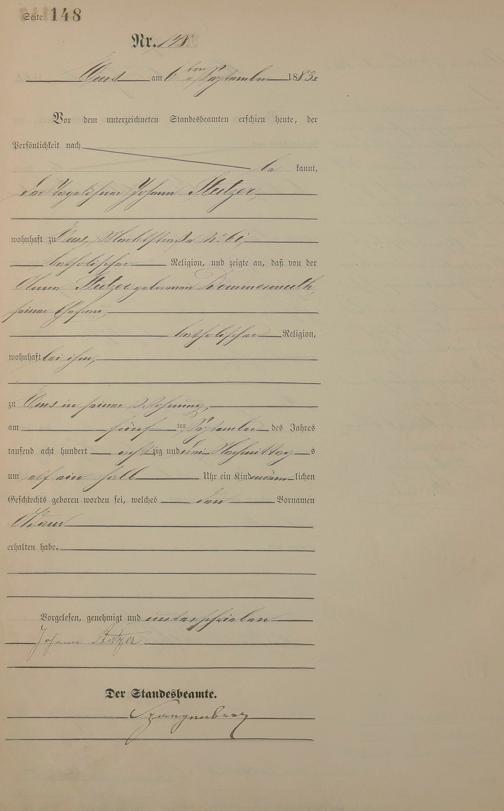 Seite 148
Nr. 148
Ems am 6 ten September 1883
Vor dem unterzeichneten Standesbeamten erschien heute, der
Persönlichkeit nach
be kannt,
der Tagelöhner Johann Stelzer
wohnhaft zu Ems,
katholischer Religion, und zeigte an, daß von der
Stelzer geborenen
seiner Ehefrau,
katholischer Religion,
wohnhaft bei ihm,
zu Ems in seiner Wohnung,
am fünf ten September des Jahres
tausend acht hundert achtzig und drei Nachmittags
um elf ein halb Uhr ein Kind männlichen
Geschlechts geboren worden sei, welches den Vornamen
erhalten habe.
Vorgelesen, genehmigt und unterschrieben
Johann Stelzer
Der Standesbeamte.
Spangenberg